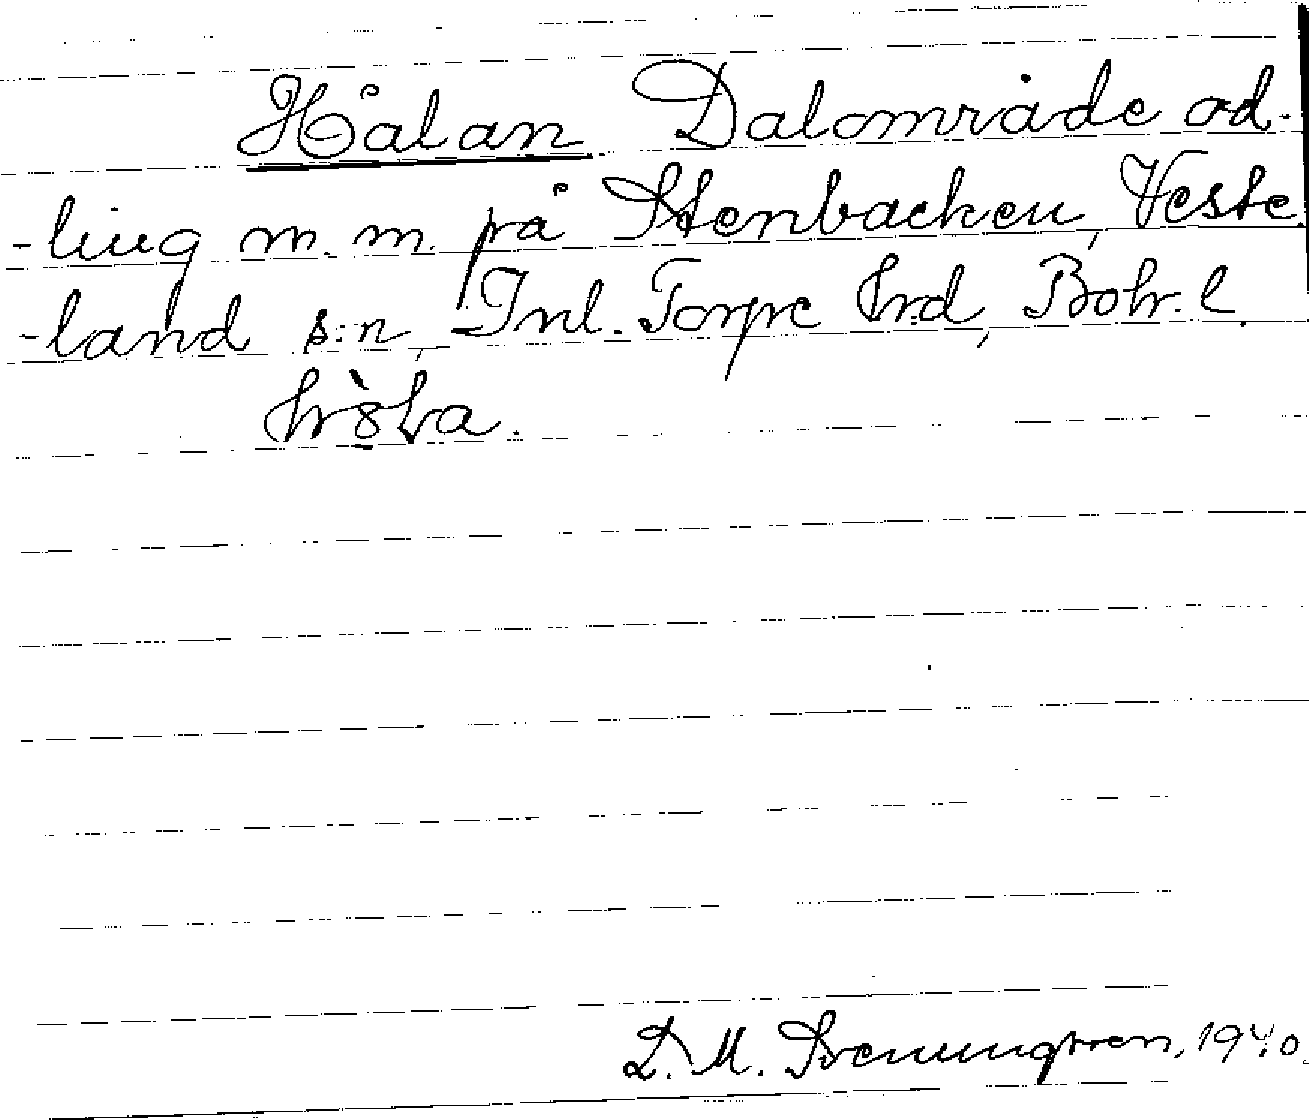 Hålan Dalområde od-
-ling m.m. på Stenbacken, Veste
-land s:n, Inl. Torpe hrd, Bohr. l.
D. M. Svenungsson, 1940.